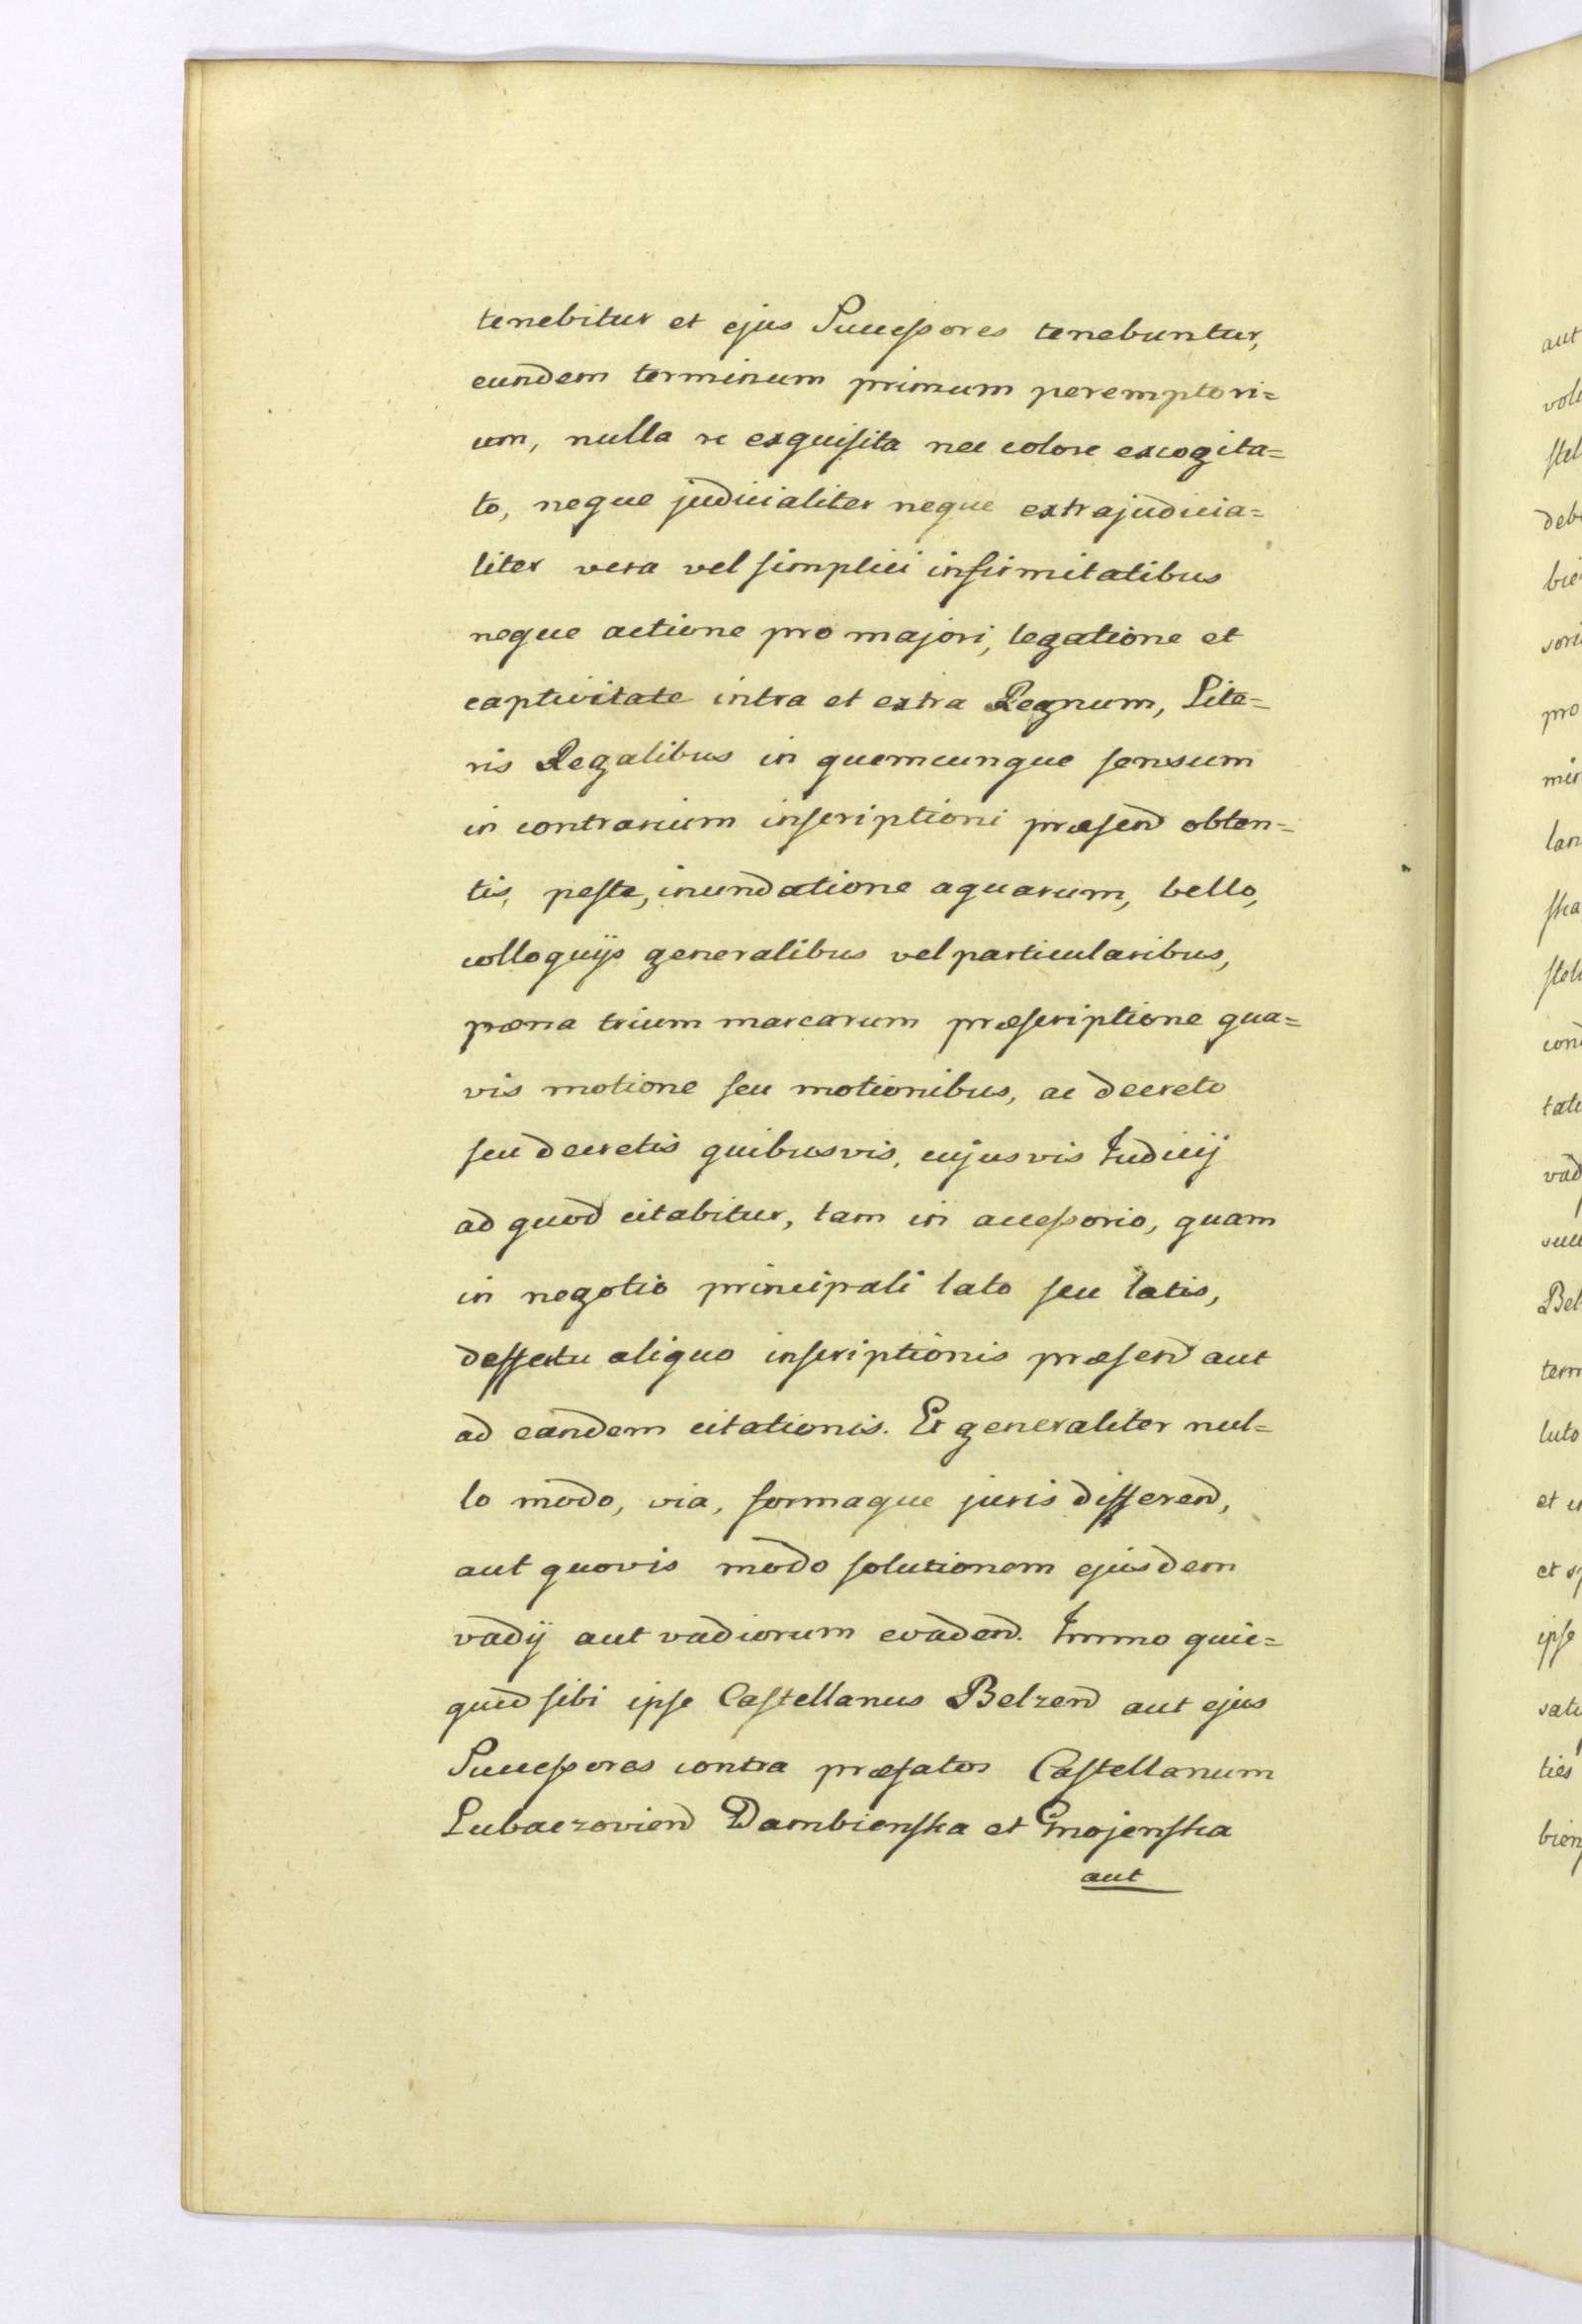 tenebitur et ejus Successores tenebuntur,
eundem terminum primum peremptori=
um, nulla re exquisita nec colore excogita=
to, neque judicialiter neque extrajudicia=
liter vera vel simplici infirmitatibus
neque actione pro majori, legatione et
captivitate intra et extra Regnum, Lite=
ris Regalibus in quemcunque sensum
in contrarium inscriptioni præsend obten=
tis, peste, inundatione aquarum, bello,
colloquijs generalibus vel particularibus,
pœna trium marcarum præscriptione qua=
vis motione seu motionibus, ac decreto
seu decretis quibusvis, cujusvis Iudicij
ad quod citabitur, tam in accessorio, quam
in negotio principali lato seu latis,
deffectu aliquo inscriptionis præsend aut
ad eandem citationis. Et generaliter nul=
lo modo, via, formaque juris differend,
aut quovis modo solutionem ejusdem
vadij aut vadiorum evadend. Immo quic=
quid sibi ipse Castellanus Belzend aut ejus
Successores contra præfatos Castellanum
Lubaczoviend Dambienska et Gnojenska
aut
aut
stel
deb
bie
pro
lan
ska
cond
tate
vad
Bel
term
luto
et
ipse
ties
bien